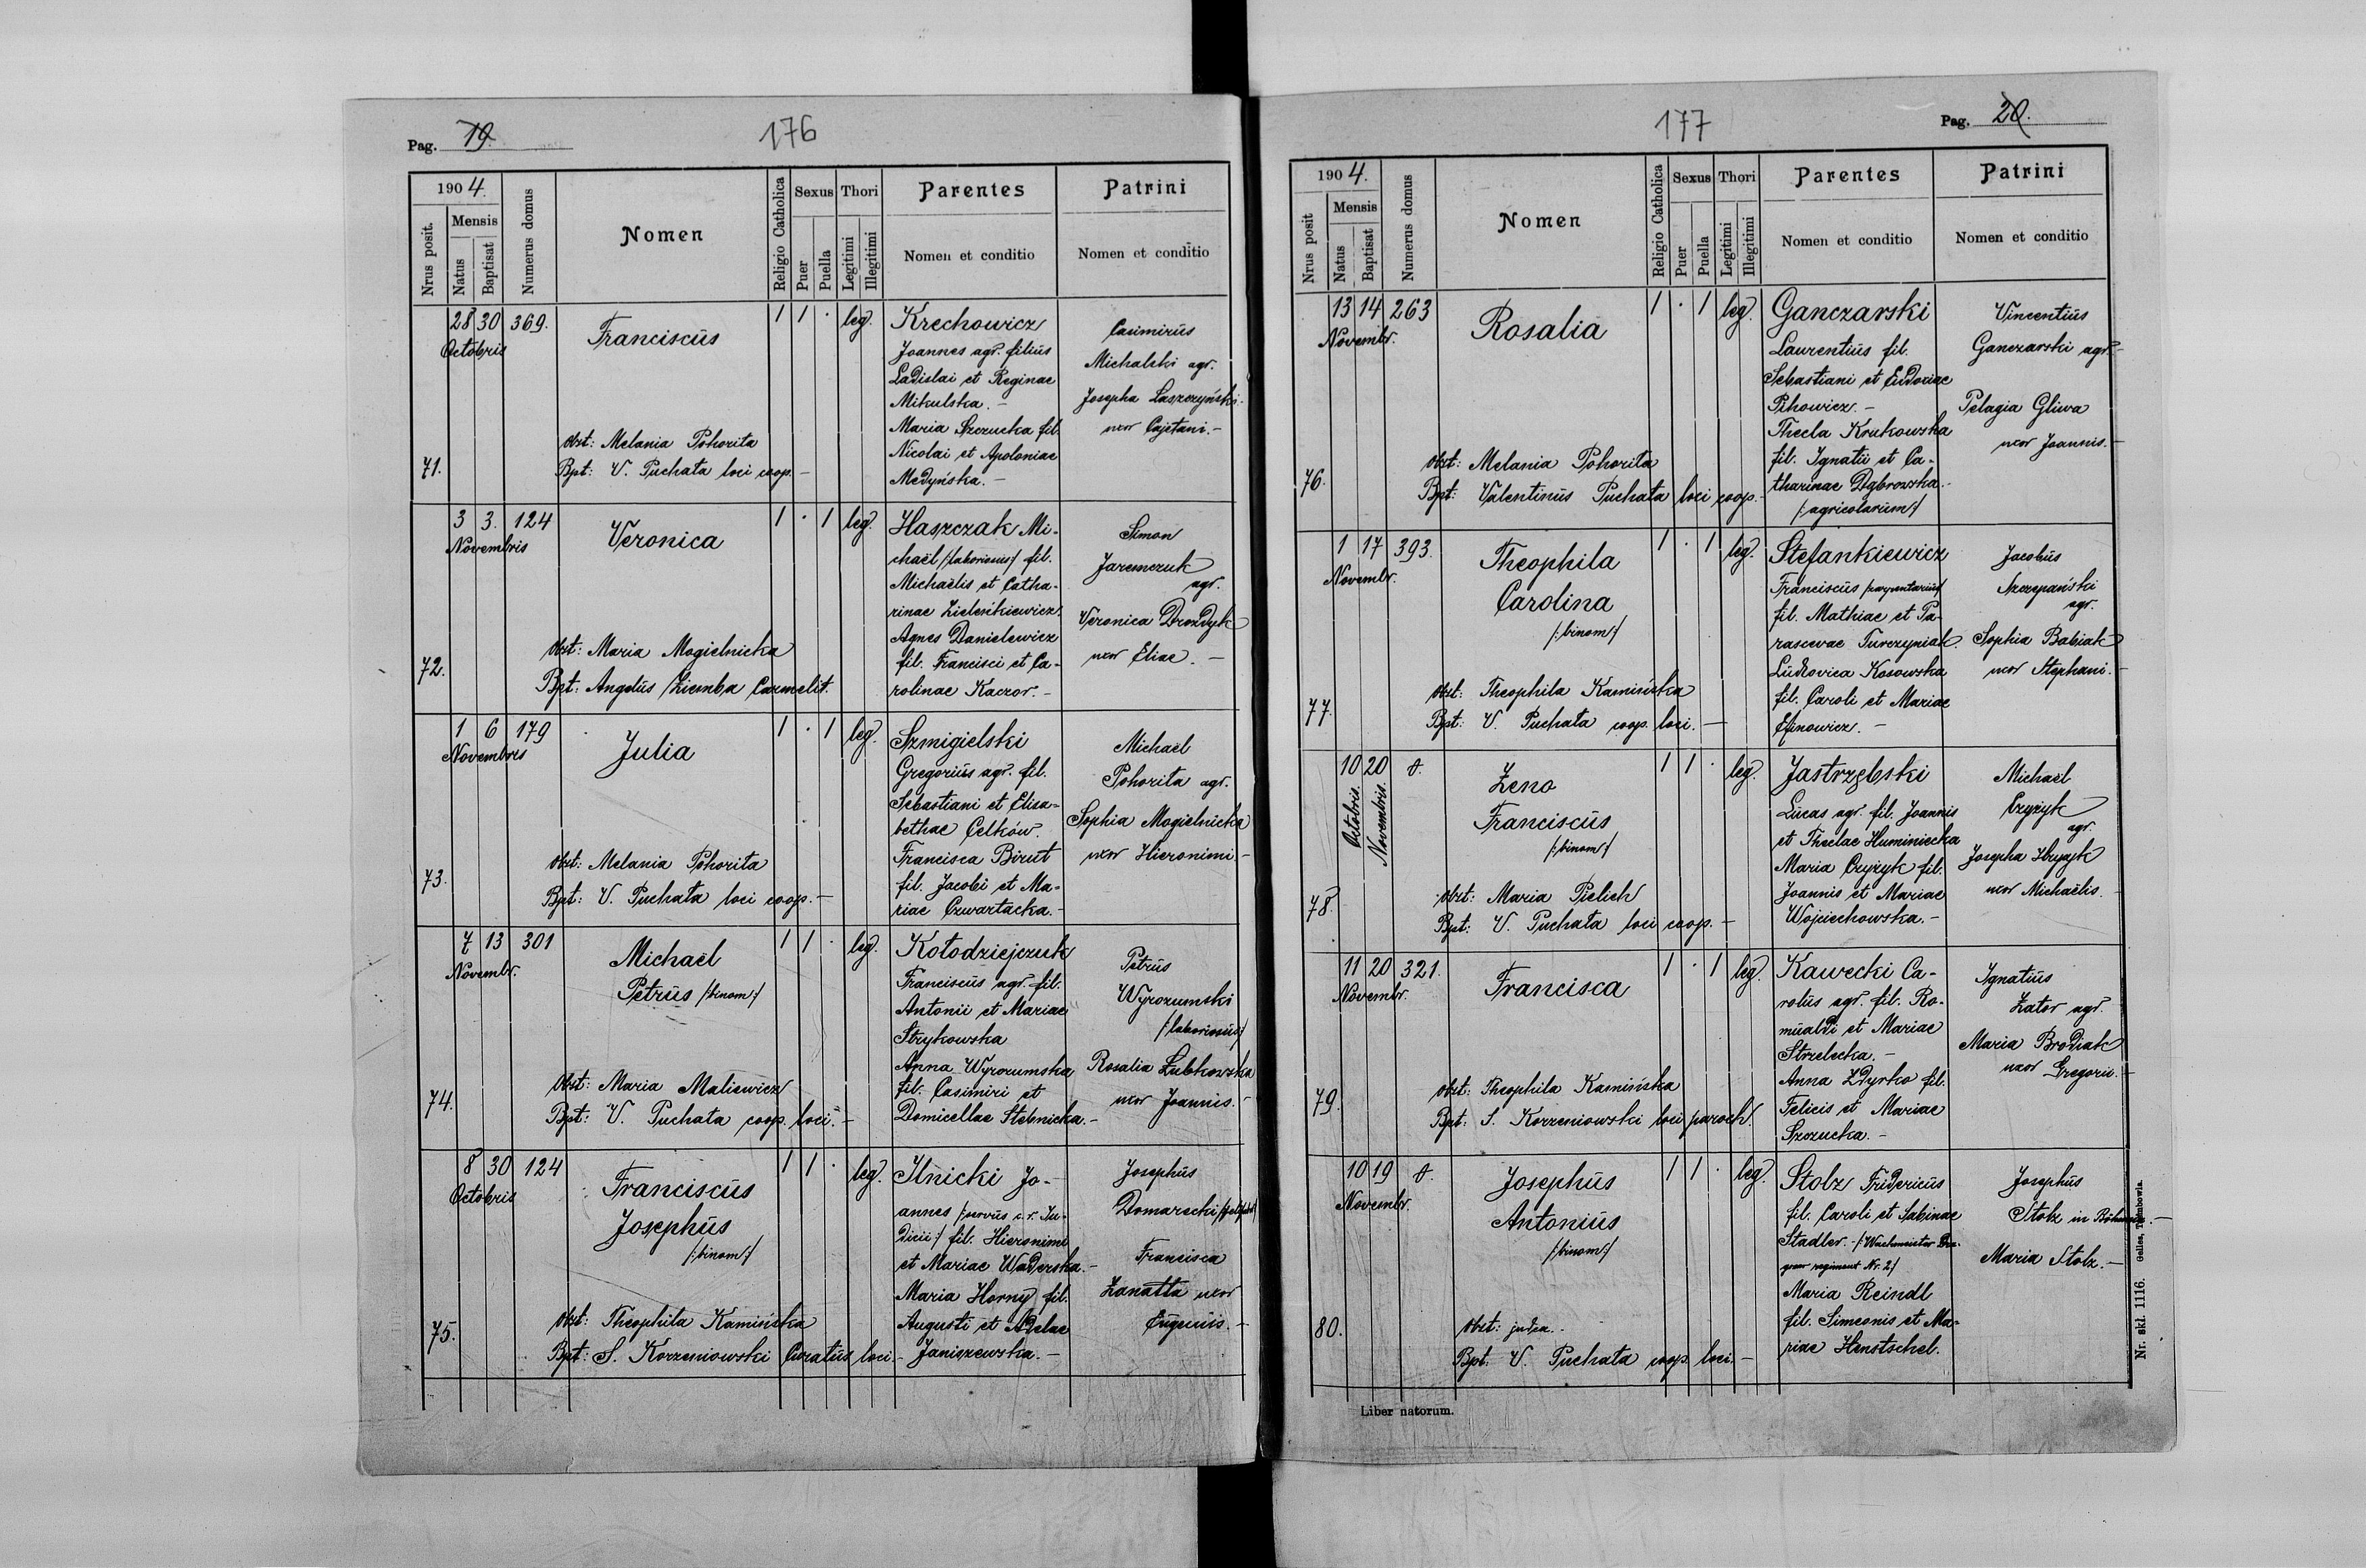 Pag. 19.
176
1904.
Nrus posit.
Mensis
Natus
Baptisat
Numerus domus
Nomen
Religio Catholica
Sexus
Puer
Puella
Thori
Legitimi
Illegitimi
Parentes
Nomen et conditio
Patrini
Nomen et conditio
71.
28 30 369.
Octobris
Franciscus
obst: Melania Pohorita
Bpt: V. Puchata loci coop. –
1 1 · leg.
Krechowicz
Joannes agr. filius
Ladislai et Reginae
Mikulska. –
Maria Szczucka fil.
Nicolai et Apoloniae
Medyńska. –
Casimirus
Michalski agr.
Josepha Laszczyński
uxor Cajetani. –
72.
3 3. 124
Novembris
Veronica
Obst: Maria Mogielnicka
Bpt: Angelus Ziemba Carmelit.
1 · 1 leg.
Haszczak Mi-
chaël /:laboriosus:/ fil.
Michaëlis et Catha-
rinae Zielenkiewicz.
Agnes Danielewicz
fil. Francisci et Ca-
rolinae Kaczor. –
Simon
Jaremczuk
agr.
Veronica Drozdyk
uxor Eliae. –
73.
1 6 179
Novembris
Julia
Obst: Melania Pohorita
Bpt: V. Puchata loci coop. –
1 · 1 leg.
Szmigielski
Gregorius agr. fil.
Sebastiani et Elisa-
bethae Celków.
Francisca Birut
fil. Jacobi et Ma-
riae Czwartacka. –
Michaël
Pohorita agr.
Sophia Mogielnicka
uxor Hieronimi –
74.
7 13 301
Novembr.
Michaël
Petrus /:binom:/
Obst: Maria Maliewicz
Bpt: V. Puchata coop. loci. –
1 1 · leg.
Kołodziejczuk
Franciscus agr. fil.
Antonii et Mariae
Strykowska
Anna Wyrozumska
fil. Casimiri et
Domicellae Stebnicka. –
Petrus
Wyrozumski
/:laboriosus:/
Rosalia Łubkowska
uxor Joannis. –
75.
8 30 124
Octobris
Franciscus
Josephus
/:binom:/
Obst: Theophila Kamińska
Bpt: S. Korzeniowski Curatus loci. –
1 1 · leg.
Ilnicki Jo-
annes c. r. Ju-
dicii:/ fil. Hieronimi
et Mariae Waderska. –
Maria Horny fil.
Augusti et Adelae
Janiszewska. –
Josephus
Domarecki
Francisca
Zanatta uxor
Eugenii. –
177
Pag. 20.
1904.
Nrus posit
Mensis
Natus
Baptisat
Numerus domus
Nomen
Religio Catholica
Sexus
Puer
Puella
Thori
Legitimi
Illegitimi
Parentes
Nomen et conditio
Patrini
Nomen et conditio
76.
13 14 263
Novembr.
Rosalia
obst: Melania Pohorita
Bpt: Valentinus Puchata loci coop. –
1 · 1 leg.
Ganczarski
Laurentius fil.
Sebastiani et Eudoxiae
Pihowicz. –
Thecla Krukowska
fil. Ignatii et Ca-
tharinae Dąbrowska. –
/:agricolarum:/
Vincentius
Ganczarski agr. –
Pelagia Gliwa
uxor Joannis. –
77.
1 17 393.
Novembr.
Theophila
Carolina
/:binom:/
Obst: Theophila Kamińska
Bpt: V. Puchata coop. loci. –
1 · 1 leg.
Stefankiewicz
Franciscus
fil. Mathiae et Pa-
rascevae Turczyniak.
Ludovica Kosowska
fil. Caroli et Mariae
Efinowicz. –
Jacobus
Szczepański
agr.
Sophia Babiak
uxor Stephani. –
78.
10 20
Octobris.
Novembris.
Zeno
Franciscus
/:binom:/
obst: Maria Pielich
Bpt: V. Puchata loci coop. –
1 1 · leg.
Jastrzębski
Lucas agr. fil. Joannis
et Theclae Huminiecka
Maria Czyżyk fil.
Joannis et Mariae
Wojciechowska. –
Michaël
Czyżyk
agr.
Josepha
uxor Michaëlis. –
79.
11 20 321.
Novembr.
Francisca
obst: Theophila Kamińska
Bpt: S. Korzeniowski loci paroch.
1 · 1 leg.
Kawecki Ca-
rolus agr. fil. Ro-
mualdi et Mariae
Strzelecka. –
Anna Zdyrko fil.
Felicis et Mariae
Szczucka. –
Ignatius
Zator agr.
Maria Brodiak
uxor Gregorii. –
80.
10 19
Novembr.
Josephus
Antonius
/:binom:/
Obst: judea. –
Bpt. V. Puchata coop. loci. –
1 1 · leg.
Stolz Fridericus
fil. Caroli et Sabinae
Stadler. – /:Wachmeister Dra-
goner regiment Nr. 2:/
Maria Reindl
fil. Simeonis et Ma-
riae Henstschel.
Josephus
Stolz in Böhmen. –
Maria Stolz. –
Liber natorum.
Nr. skł. 1116. Gelles, Trembowla.